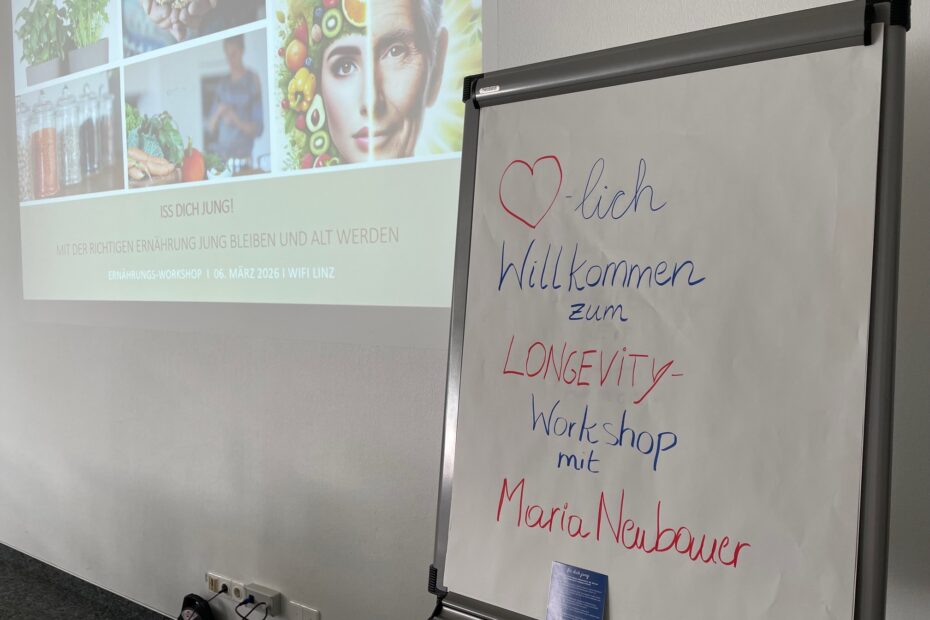 ISS DICH JUNG!
MIT DER RICHTIGEN ERNÄHRUNG JUNG BLEIBEN UND ALT WERDEN
ERNÄHRUNGS-WORKSHOP I 06. MÄRZ 2026 I WIFI LINZ
-lich
Willkommen
zum
LONGEVITY-
Workshop
mit
Maria Neubauer